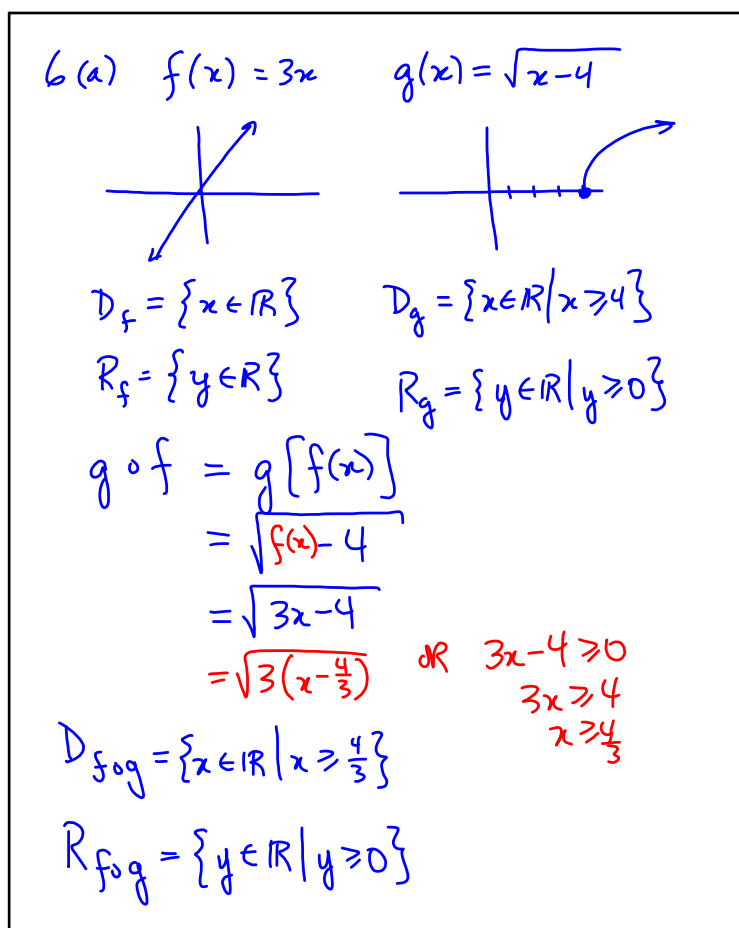 6 (a) f(x) = 3x g(x) = √(x-4)
D_f = {x ∈ ℝ} D_g = {x ∈ ℝ | x ≥ 4}
R_f = {y ∈ ℝ} R_g = {y ∈ ℝ | y ≥ 0}
g ∘ f = g[f(x)]
= √(f(x) - 4)
= √(3x-4)
= √(3(x - 4/3)) OR 3x-4 ≥ 0
3x ≥ 4
x ≥ 4/3
D_f∘g = {x ∈ ℝ | x ≥ 4/3}
R_f∘g = {y ∈ ℝ | y ≥ 0}